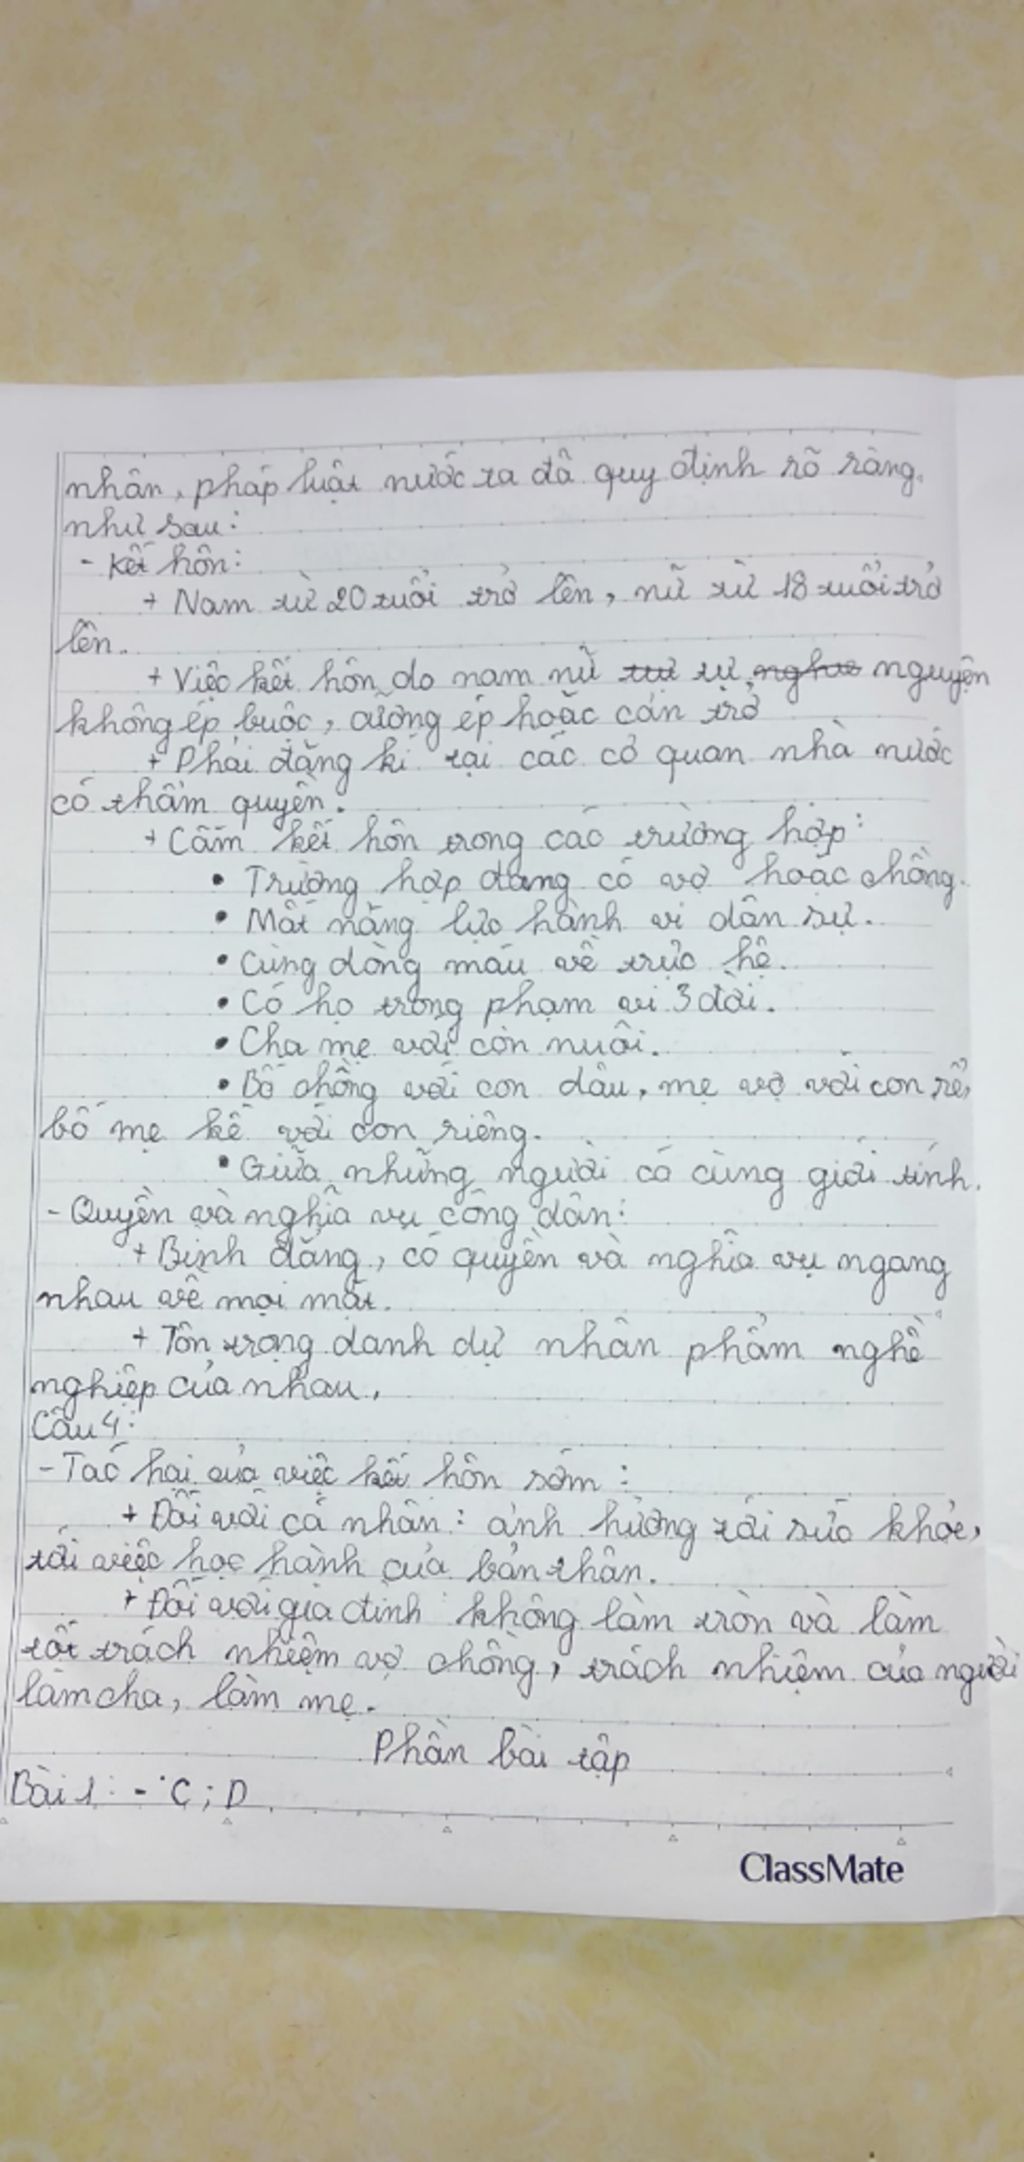 nhân, pháp luật nước ta đã quy định rõ ràng.
như sau:
- Kết hôn:
+ Nam từ 20 tuổi trở lên, nữ từ 18 tuổi trở
lên.
+ Việc kết hôn do nam nữ tự nguyện
không ép buộc, cưỡng ép hoặc cản trở
+ Phải đăng kí tại các cơ quan nhà nước
có thẩm quyền.
+ Cấm kết hôn trong các trường hợp:
• Trường hợp đang có vợ hoặc chồng.
• Mất năng lực hành vi dân sự.
• Cùng dòng máu về trực hệ.
• Có họ trong phạm vi 3 đời.
• Cha mẹ với con nuôi.
• Bố chồng với con dâu, mẹ vợ với con rể,
bố mẹ kế với con riêng.
• Giữa những người có cùng giới tính.
- Quyền và nghĩa vụ công dân:
+ Bình đẳng, có quyền và nghĩa vụ ngang
nhau về mọi mặt.
+ Tôn trọng danh dự nhân phẩm nghề
nghiệp của nhau.
Câu 4:
- Tác hại của việc kết hôn sớm:
+ Đối với cá nhân: ảnh hưởng tới sức khỏe,
tới việc học hành của bản thân.
+ Đối với gia đình không làm tròn và làm
tốt trách nhiệm vợ chồng, trách nhiệm của người
làm cha, làm mẹ.
Phần bài tập
Bài 1: - C; D
ClassMate